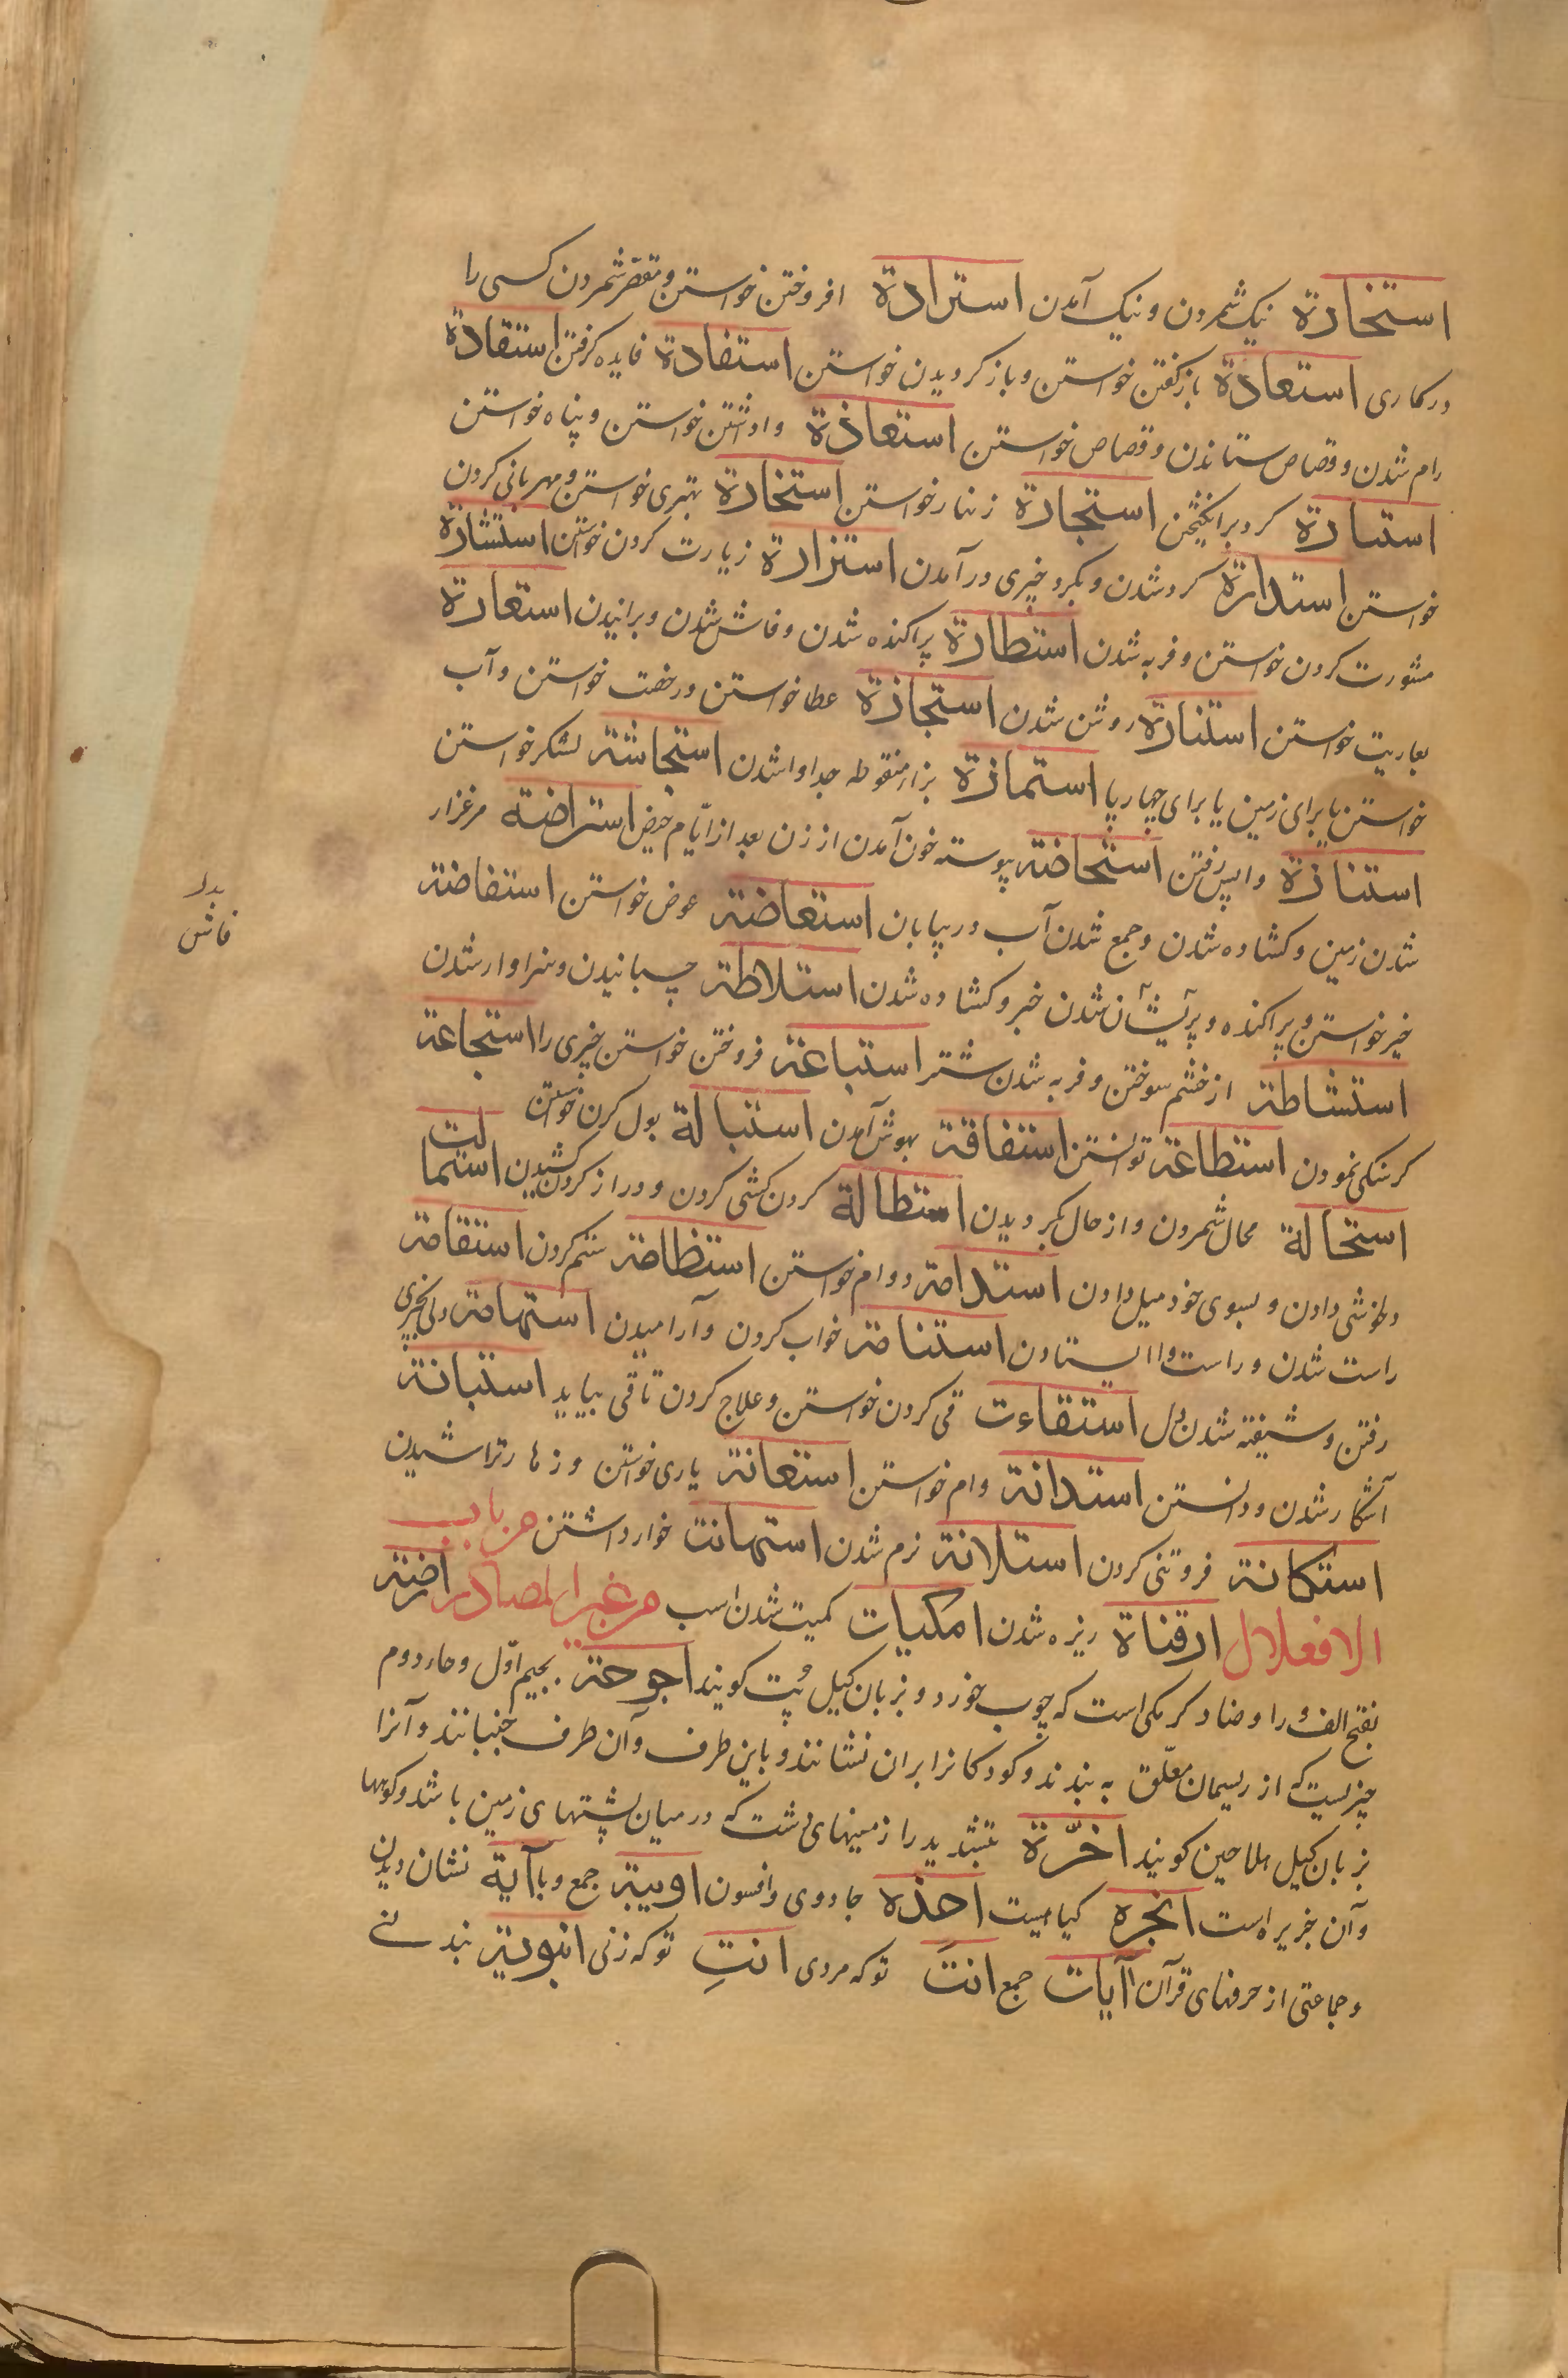 استخارة نیک شمردن و نیک آمدن استرادة افروختن خواستن و مقصر شمردن کسی را
در کاری استعادة بازکفتن خواستن و باز کرویدن خواستن استفادة فایده کرفتن استقادة
رام شدن و قصاص ستاندن و قصاص خواستن استعاذة واداشتن خواستن و پناه خواستن
استبارة کرد برانکیختن استجارة زنهار خواستن استخارة بهتری خواستن و مهربانی کردن
خواستن استدارة کرد شدن و بکرد خیری درآمدن استزارة زیارت کردن خواستن استشارة
مشورت کردن خواستن و فربه شدن استطارة پراکنده شدن و فاش شدن و برانیدن استعارة
بعاریت خواستن استنارة روشن شدن استجازة عطا خواستن و رخصت خواستن و آب
خواستن یا برای زمین یا برای چهارپا استمازة بزاء منقوطه جدا واشدن استجاشة لشکر خواستن
استنازة واپس رفتن استحاضة پیوسته خون آمدن از زن بعد از ایّام حیض استراضة مرغزار
شدن زمین و کشاده شدن و جمع شدن آب در بیابان استعاضة عوض خواستن استفاضة
خیر خواستن و پراکنده و پریشان شدن خبر و کشاده شدن استلاطة چسبانیدن و سزاوار شدن
استشاطة از خشم سوختن و فربه شدن شتر استباعة فروختن خواستن چیزی را استجاعة
کرسنکی نمودن استطاعة توانستن استفاقة بهوش آمدن استبالة بول کردن خواستن
استحالة محال شمردن و از حال بکردیدن استطالة کردن کشی کردن و دراز کردن کشیدن استمالت
دلخوشی دادن و بسوی خود میل دادن استدامة دوام خواستن استظامة ستم کردن استقامة
راست شدن و راست واایستادن استنامة خواب کردن و آرامیدن استهامة دلی بچیزی
رفتن و شیفته شدن دل استقاءت قی کردن خواستن و علاج کردن تا قی بیاید استبانة
آشکار شدن و دانستن استدانة وام خواستن استعانة یاری خواستن و زهار تراشیدن
استکانة فروتنی کردن استلانة نرم شدن استهانت خوار داشتن من باب
الافعلال ارقناة ریزه شدن امکیات کمیت شدن اسب من غیر المصادر ارضة
بفتح الف و را و ضاد کرمکی است که چوب خورد و بزبان کیل پُت کویند اجوحة بجیم اوّل و حاء دوم
چیزیست که از ریسمان معلّق به بندند و کودکانرا بران نشانند و باین طرف و آن طرف جنبانند و آنرا
بزبان کیل هلاحین کویند اخرّة بتشدید را زمینهای دشت که در میان پشتهای زمین باشد و کوهها
و آن خریر است انجره کیاهیست احذه جادوی و افسون اوبیة جمع وبا آیة نشان و بدن
و جماعتی از حرفهای قرآن آیات جمع انتَ توکه مردی انتِ توکه زنی انبوبة بند نی
بدل
فاش